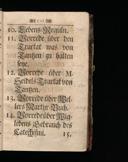 10. Lebens-Regeln.
11. Vorrede über den
Tractat was von
Tantzen zu halten
seye.
12. Vorrede über M.
Seidels Tractat von
Tantzen.
13. Vorrede über Wel-
lers Martyr Buch.
14. Vorrede über
lebens Gebrauch des
Catechismi.
15.